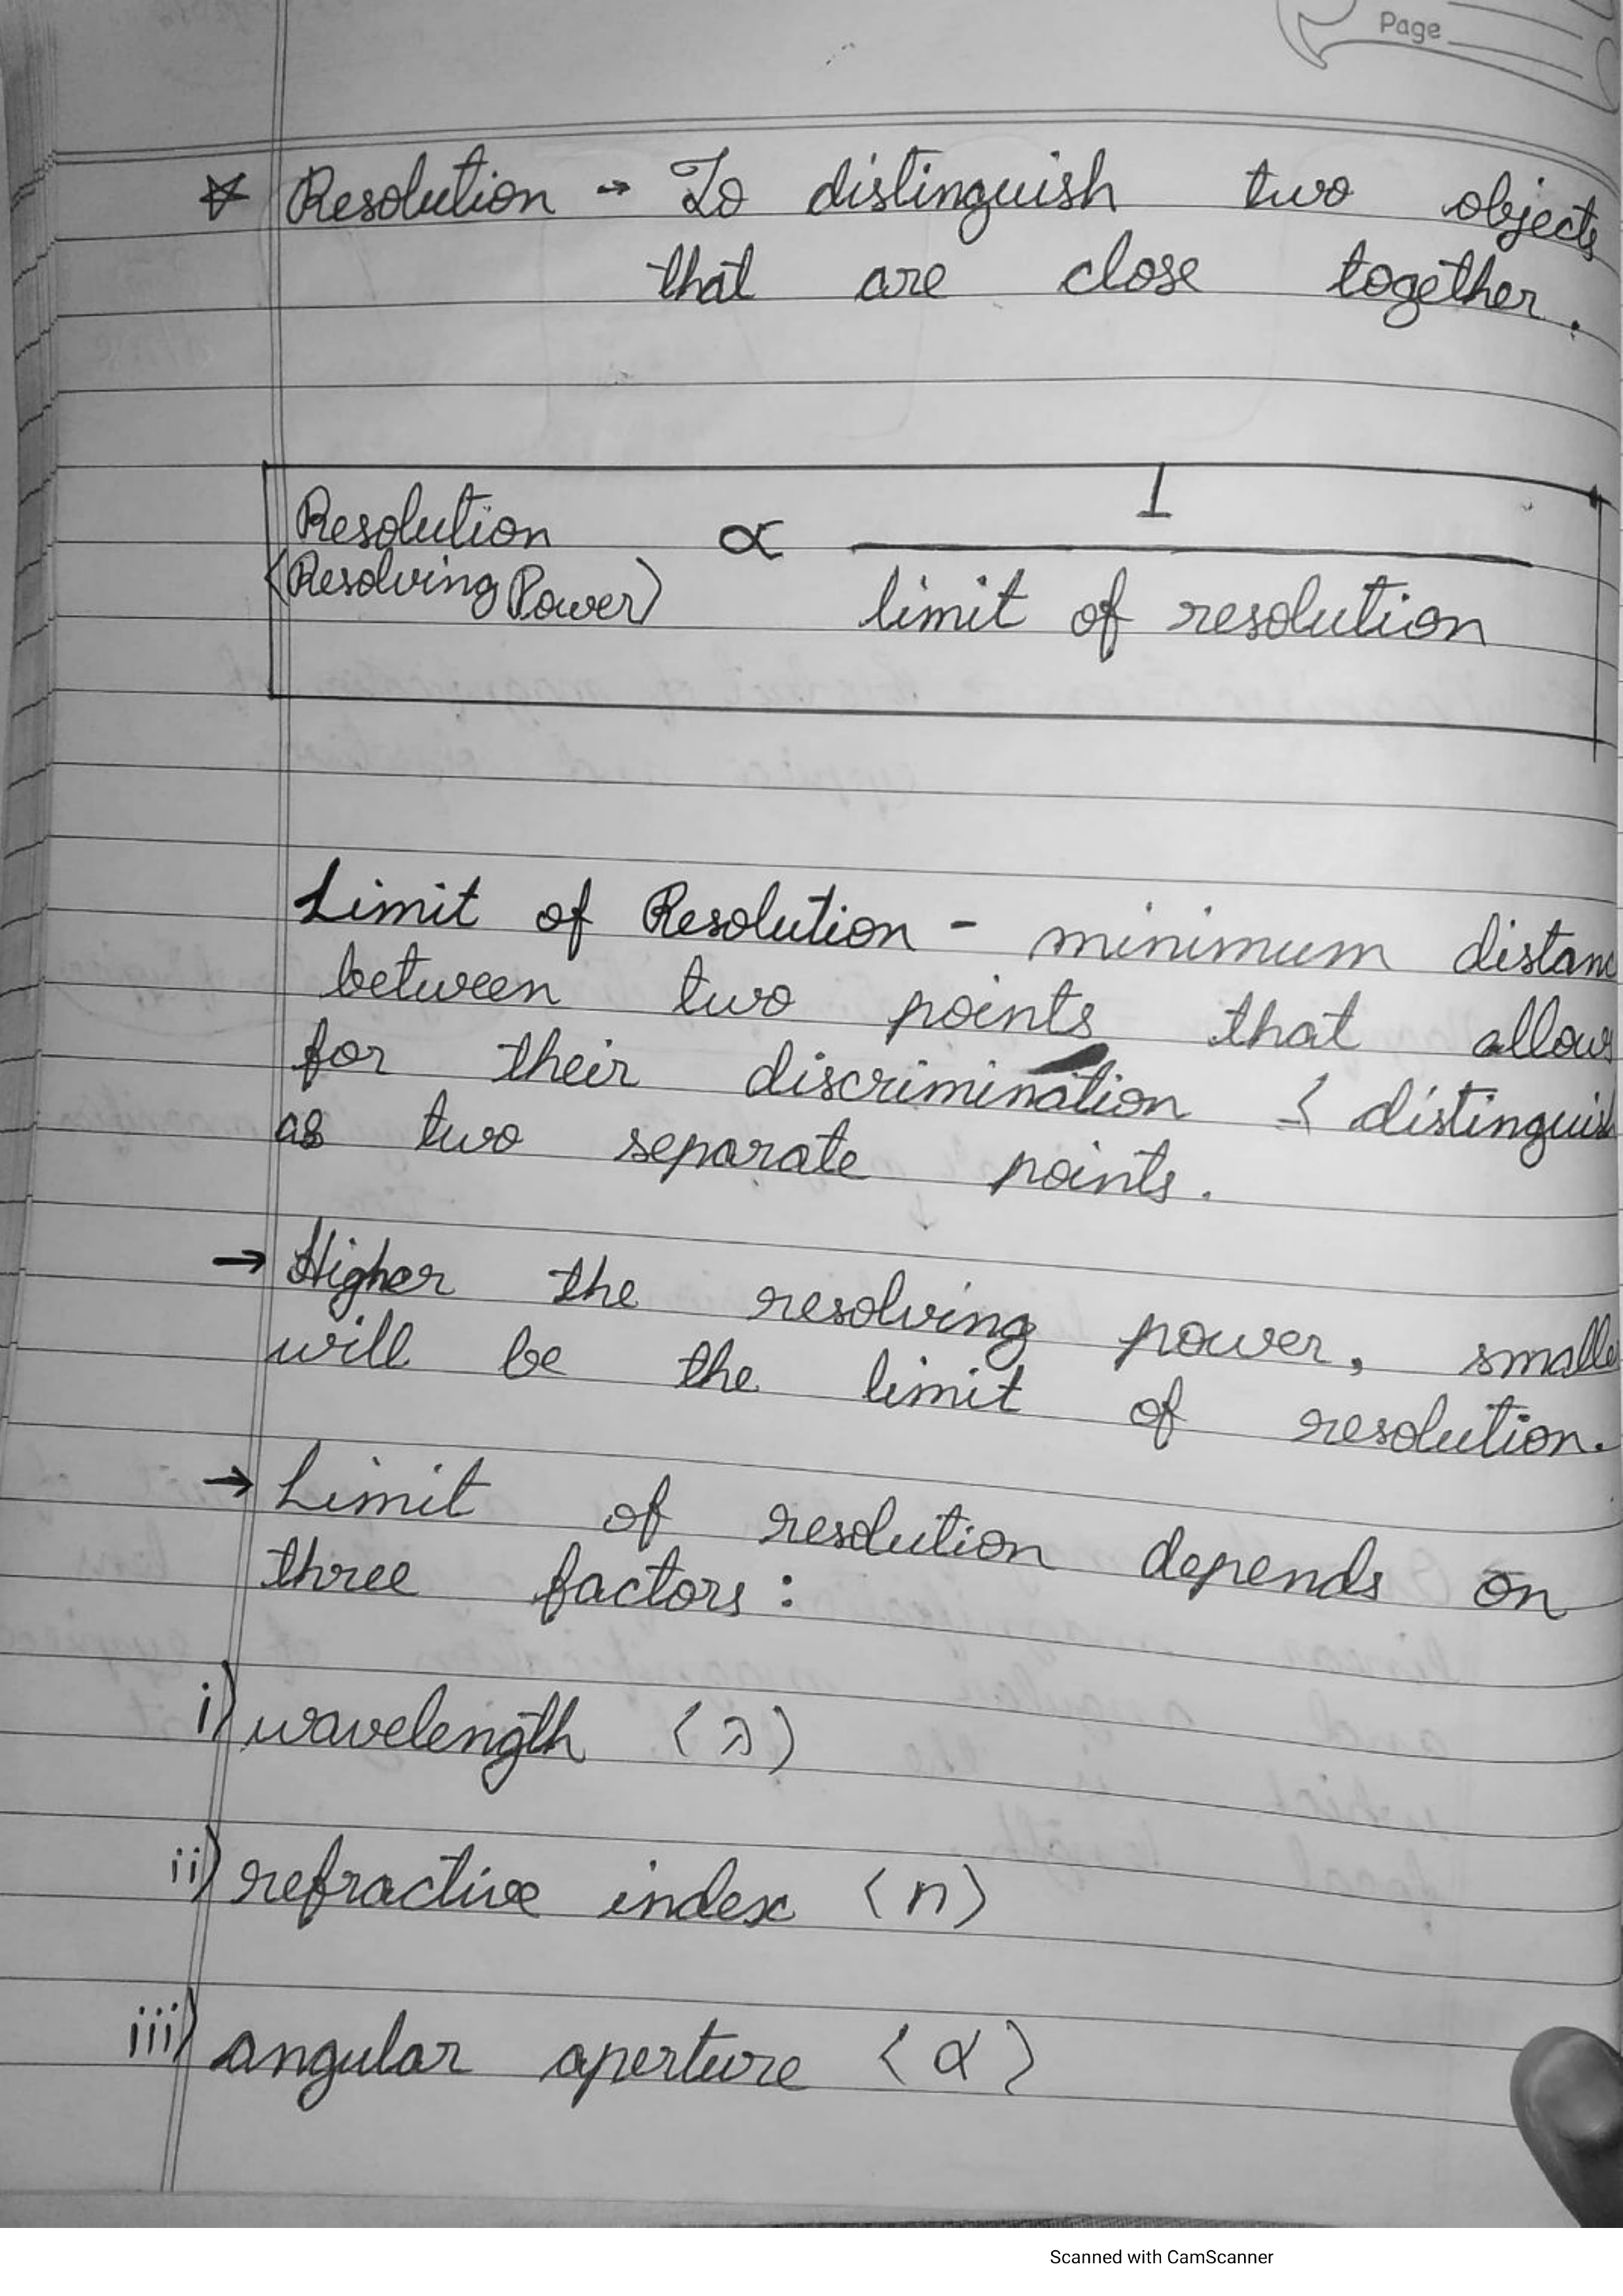 Page
☆ Resolution → To distinguish two objects
that are close together.
Resolution ∝ 1
(Resolving Power) limit of resolution
Limit of Resolution - minimum distanc
between two points that allows
for their discrimination < distinguish
as two separate points.
→ Higher the resolving power, smalle
will be the limit of resolution.
→ Limit of resolution depends on
three factors:
i) wavelength (λ)
ii) refractive index (n)
iii) angular aperture (α)
Scanned with CamScanner